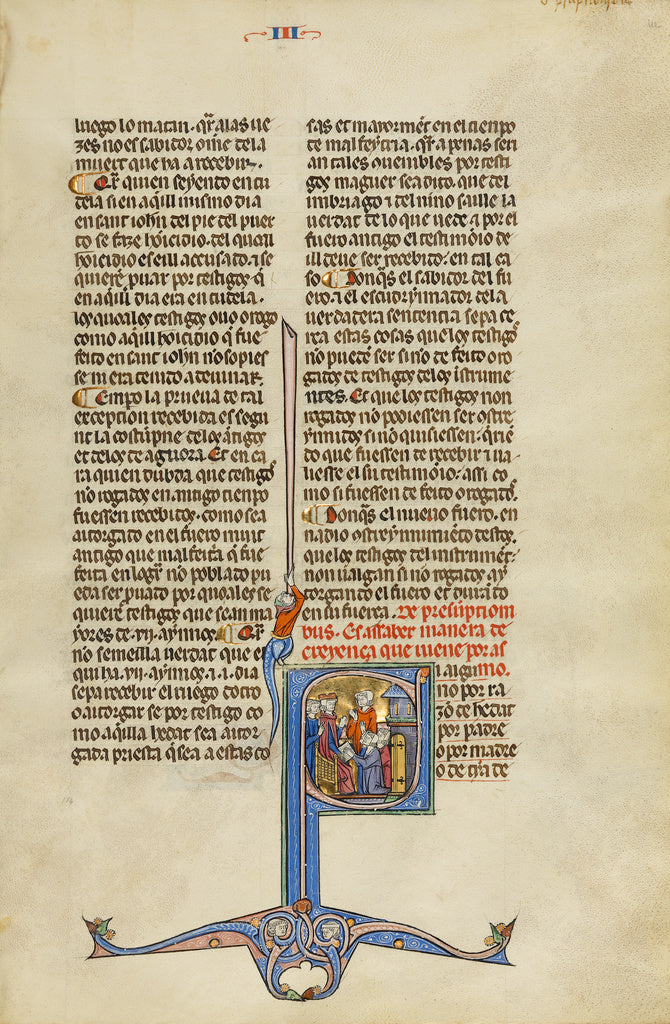 III
luego lo matan. qr̄ alas ue
zes no es sabidor om̄e dela
muert que ha a recebir.
Qr̄ quien seyendo en tu
dela si en aq̄ill mismo dia
en sant iohn̄ del pie del puer
to se faze hōicidio. del quall
hōicidio es eill accusado. ⁊ se
quierē p̄uar por testigos q̄
en aq̄ill dia era en tudela.
los quoales testigos ouo o rogo
como aq̄ill hōicidio q̄ fue
feito en sant iohn̄ no sopies
se ni era tenido a deuinar.
Empo la prueua de tal
exception recebida es segū
nt la costūpne delos ātigos
et delos de aguora. Et en ca
ra quien dubda que testigos
nō rogados en antigo tienpo
fuessen recebidos. como sea
atorgado en el fuero muit
antigo que malfeita q̄ fue
feita en logr̄ no poblado pu
eda ser p̄uado por quoales se
quiere testigos que sean ma
yores de .vii. aynnos. Qr̄
no semeilla uerdat que el
qui ha .vii. aynnos. ⁊ .i. dia
sepa recebir el ruego dotro
o atorgar se por testigo co
mo aq̄lla hedat sea ator
gada priesta q̄ sea a estas co
sas et mayormēt en el tienpo
de mal feytria. qr̄ a penas seri
an tales ouenibles por testi
gos maguer sea dito. que del
imbriago ⁊ del nino saille la
uerdat de lo que uede ⁊ por el
fuero antigo el testimōio de
ill deue ser recebido. en tal ca
so Donq̄s el sabidor del fu
ero. ⁊ el escudrynnador dela
uerdadera sentencia sepa ce
rca estas cosas que los testigos
no puedē ser si no de feito o ro
gados de testigos delos īstrume
ntes. Et que los testigos non
rogados nō podiessen ser ostre
ynnidos si nō quisiessen. qn̄e
do que fuessen de recebir ⁊ ua
liesse el su testimōio. assi co
mo si fuessen de feito o rogados.
Donq̄s el nueuo fuero. en
nadio ostreynnimiēto destos.
que los testigos del instrumēt
non ualgan si no rogados. ay
torgando el fuero et durado
en su fuerça. De presūptiom
bus. Es assaber manera de
creyença que uiene por as
i algu no.
no por ra
zō de hedat
por padre
o por madre
o de cria de